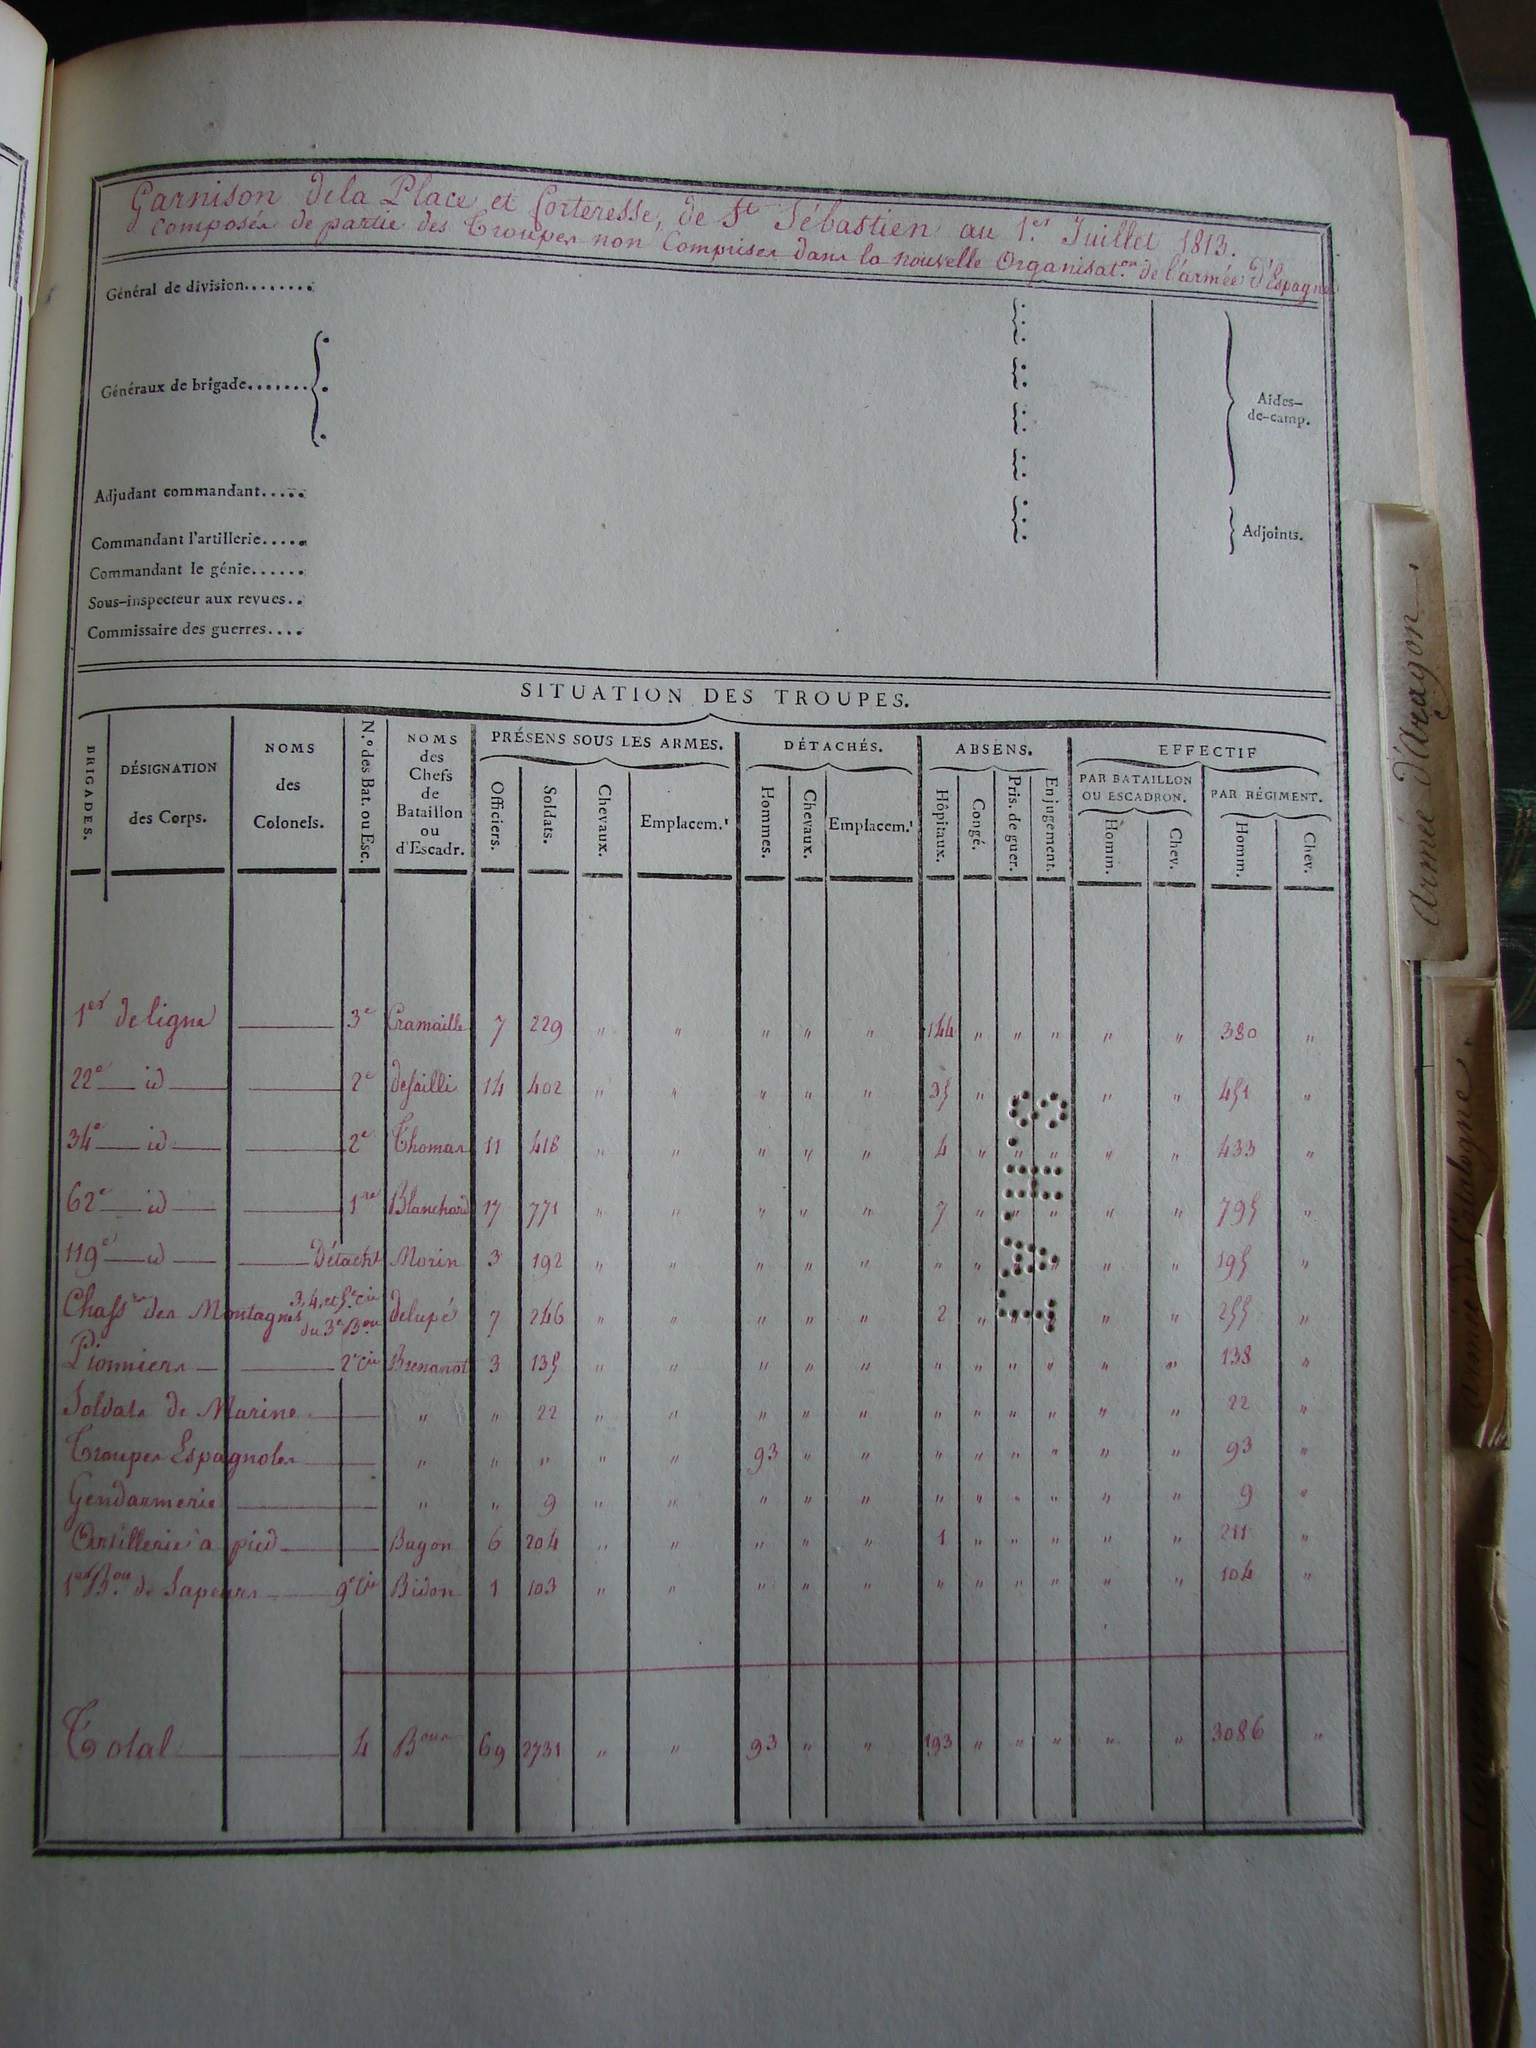 Garnison dela Place et Forteresse, de St Sébastien au 1.er Juillet 1813.
Composée de partie des Troupes non Comprises dans la nouvelle Organisat.on de l'armée d'Espagne
Général de division........
Généraux de brigade.......
Aides-
de-camp.
Adjudant commandant.....
Commandant l'artillerie.....
Adjoints.
Commandant le génie......
Sous-inspecteur aux revues..
Commissaire des guerres....
SITUATION DES TROUPES.
BRIGADES.
DÉSIGNATION
des Corps.
NOMS
des
Colonels.
N.º des Bat. ou Esc.
NOMS
des
Chefs
de
Bataillon
ou
d'Escadr.
PRÉSENS SOUS LES ARMES.
Officiers.
Soldats.
Chevaux.
Emplacem.t
DÉTACHÉS.
Hommes.
Chevaux.
Emplacem.t
ABSENS.
Hôpitaux.
Congé.
Pris. de guer.
Enjugement.
EFFECTIF
PAR BATAILLON
OU ESCADRON.
Homm.
Chev.
PAR RÉGIMENT.
Homm.
Chev.
1er de ligne 3e Cramaille 7 229 " " " " " 144 " " " " " 380 "
22e id 2e desailli 14 402 " " " " " 35 " " " " 451 "
34e id 2e Thomas 11 418 " " " " " 4 " " " " " 433 "
62e id 1re Blanchard 17 771 " " " " " 7 " " " " " 795 "
119e id Détacht Morin 3 192 " " " " " " " " " " " 195 "
Chassrs des Montagnes 3, 4, et 5e Cie du 3e Bon delupé 7 246 " " " " " 2 " " " " 255 "
Pionniers 2e Cie Bresanot 3 135 " " " " " " " " " " " 138 "
Soldats de Marine " " 22 " " " " " " " " " " " 22 "
Troupes Espagnoles " " " " " 93 " " " " " " " " 93 "
Gendarmerie " " 9 " " " " " " " " " " " 9 "
Artillerie à pied Bugon 6 204 " " " " " 1 " " " " " 211 "
1er Bon de Sapeurs 9e Cie Bidon 1 103 " " " " " " " " " " " 104 "
Total 4 Bons 69 2731 " " 93 " " 193 " " " " " 3086 "
S.H.A.T.
Armée d'Aragon.
armée de Catalogne.